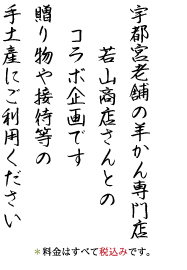 宇都宮老舗の羊かん専門店
若山商店さんとの
コラボ企画です
贈り物や接待等の
手土産にご利用ください
＊料金はすべて税込みです。